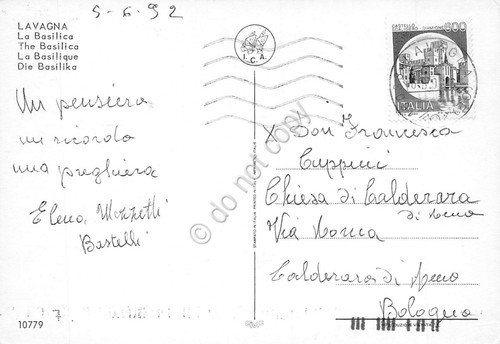 5-6.92
LAVAGNA
La Basilica
The Basilica
La Basilique
Die Basilika
Un pensiero
un ricordo
una preghiera
Elena Mozzetti
Bastelli
10779
7
I.C.A.
STAMPATO IN ITALIA PRINTED IN ITALY
do not copy
CASTELLO
600
ITALIA
X Don Francesca
Cuppini
Chiesa di Calderara
di Reno
Via Roma
Calderara di Reno
Bologna